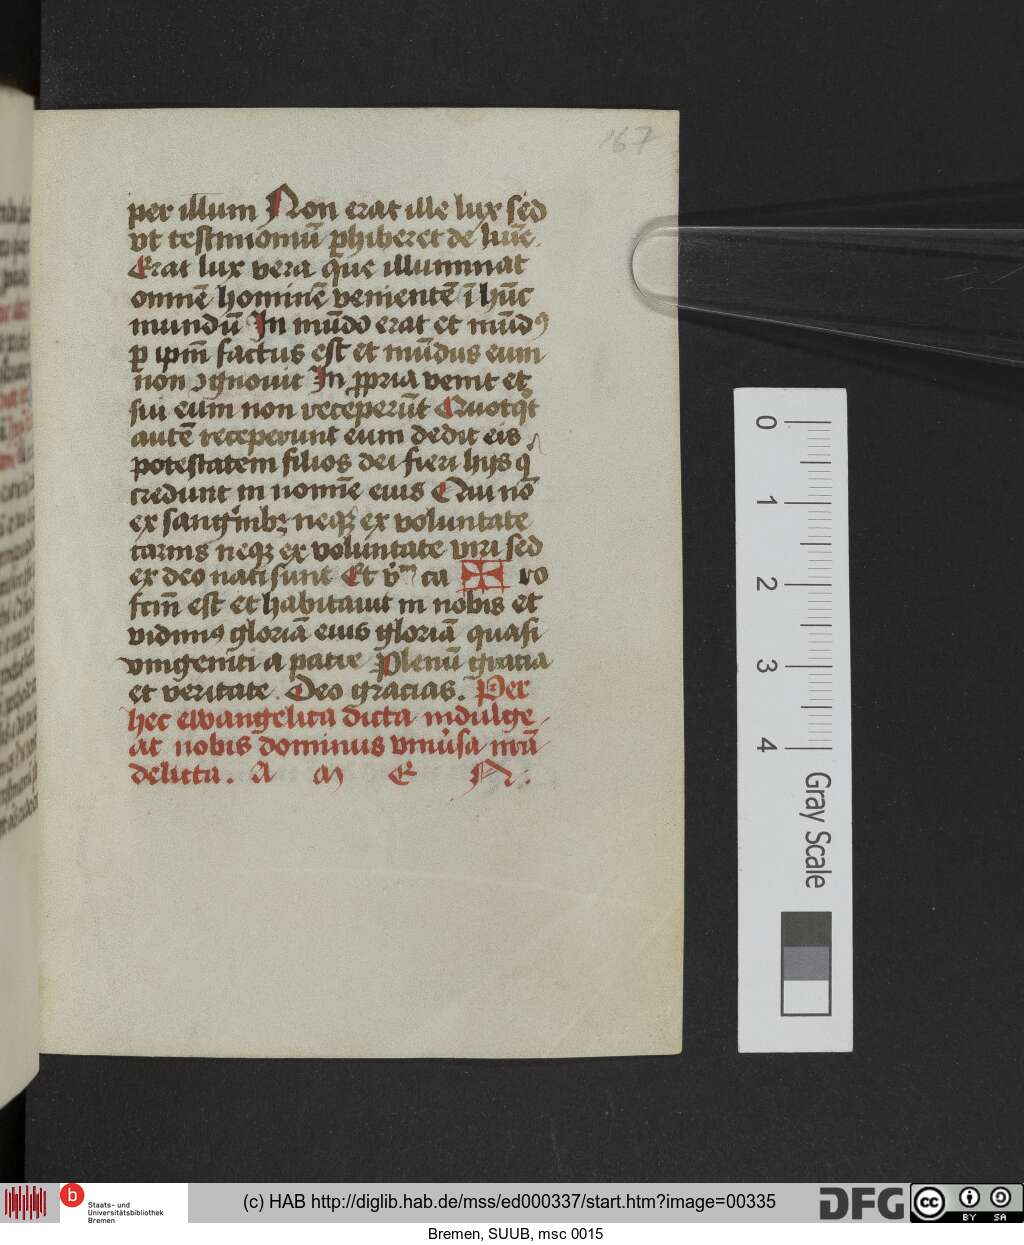 167
per illum Non erat ille lux sed
vt testmioniū phiberet de lūie.
Erat lux vera que illuminat
omnē hominē venientē ī hūc
mundū In mūdo erat et mūdꝰ
ꝑ ipm̄ factus est et mūdus eum
non ↄgnouit In ꝓpria venit et
sui eum non receperūt Quotqͦt
autē receperunt eum dedit eis
potestatem filios dei fieri hijs q̄
credunt in nomīe eius Qui nō
ex sanginibꝫ neqꝫ ex voluntate
carnis neqꝫ ex voluntate viri sed
ex deo nati sunt Et v̄m ca ro
fcm̄ est et habitauit in nobis et
vidimꝰ gloriā eius gloriā quasi
vnigeniti a patre Plenū gracia
et veritate. Deo gracias. Per
hec ewangelica dicta indulge
at nobis dominus vniūsa nr̄a
delicta. A M E N.
0
1
2
3
4
Gray Scale
b
Staats- und
Universitätsbibliothek
Bremen
(c) HAB http://diglib.hab.de/mss/ed000337/start.htm?image=00335
DFG
cc
BY SA
Bremen, SUUB, msc 0015